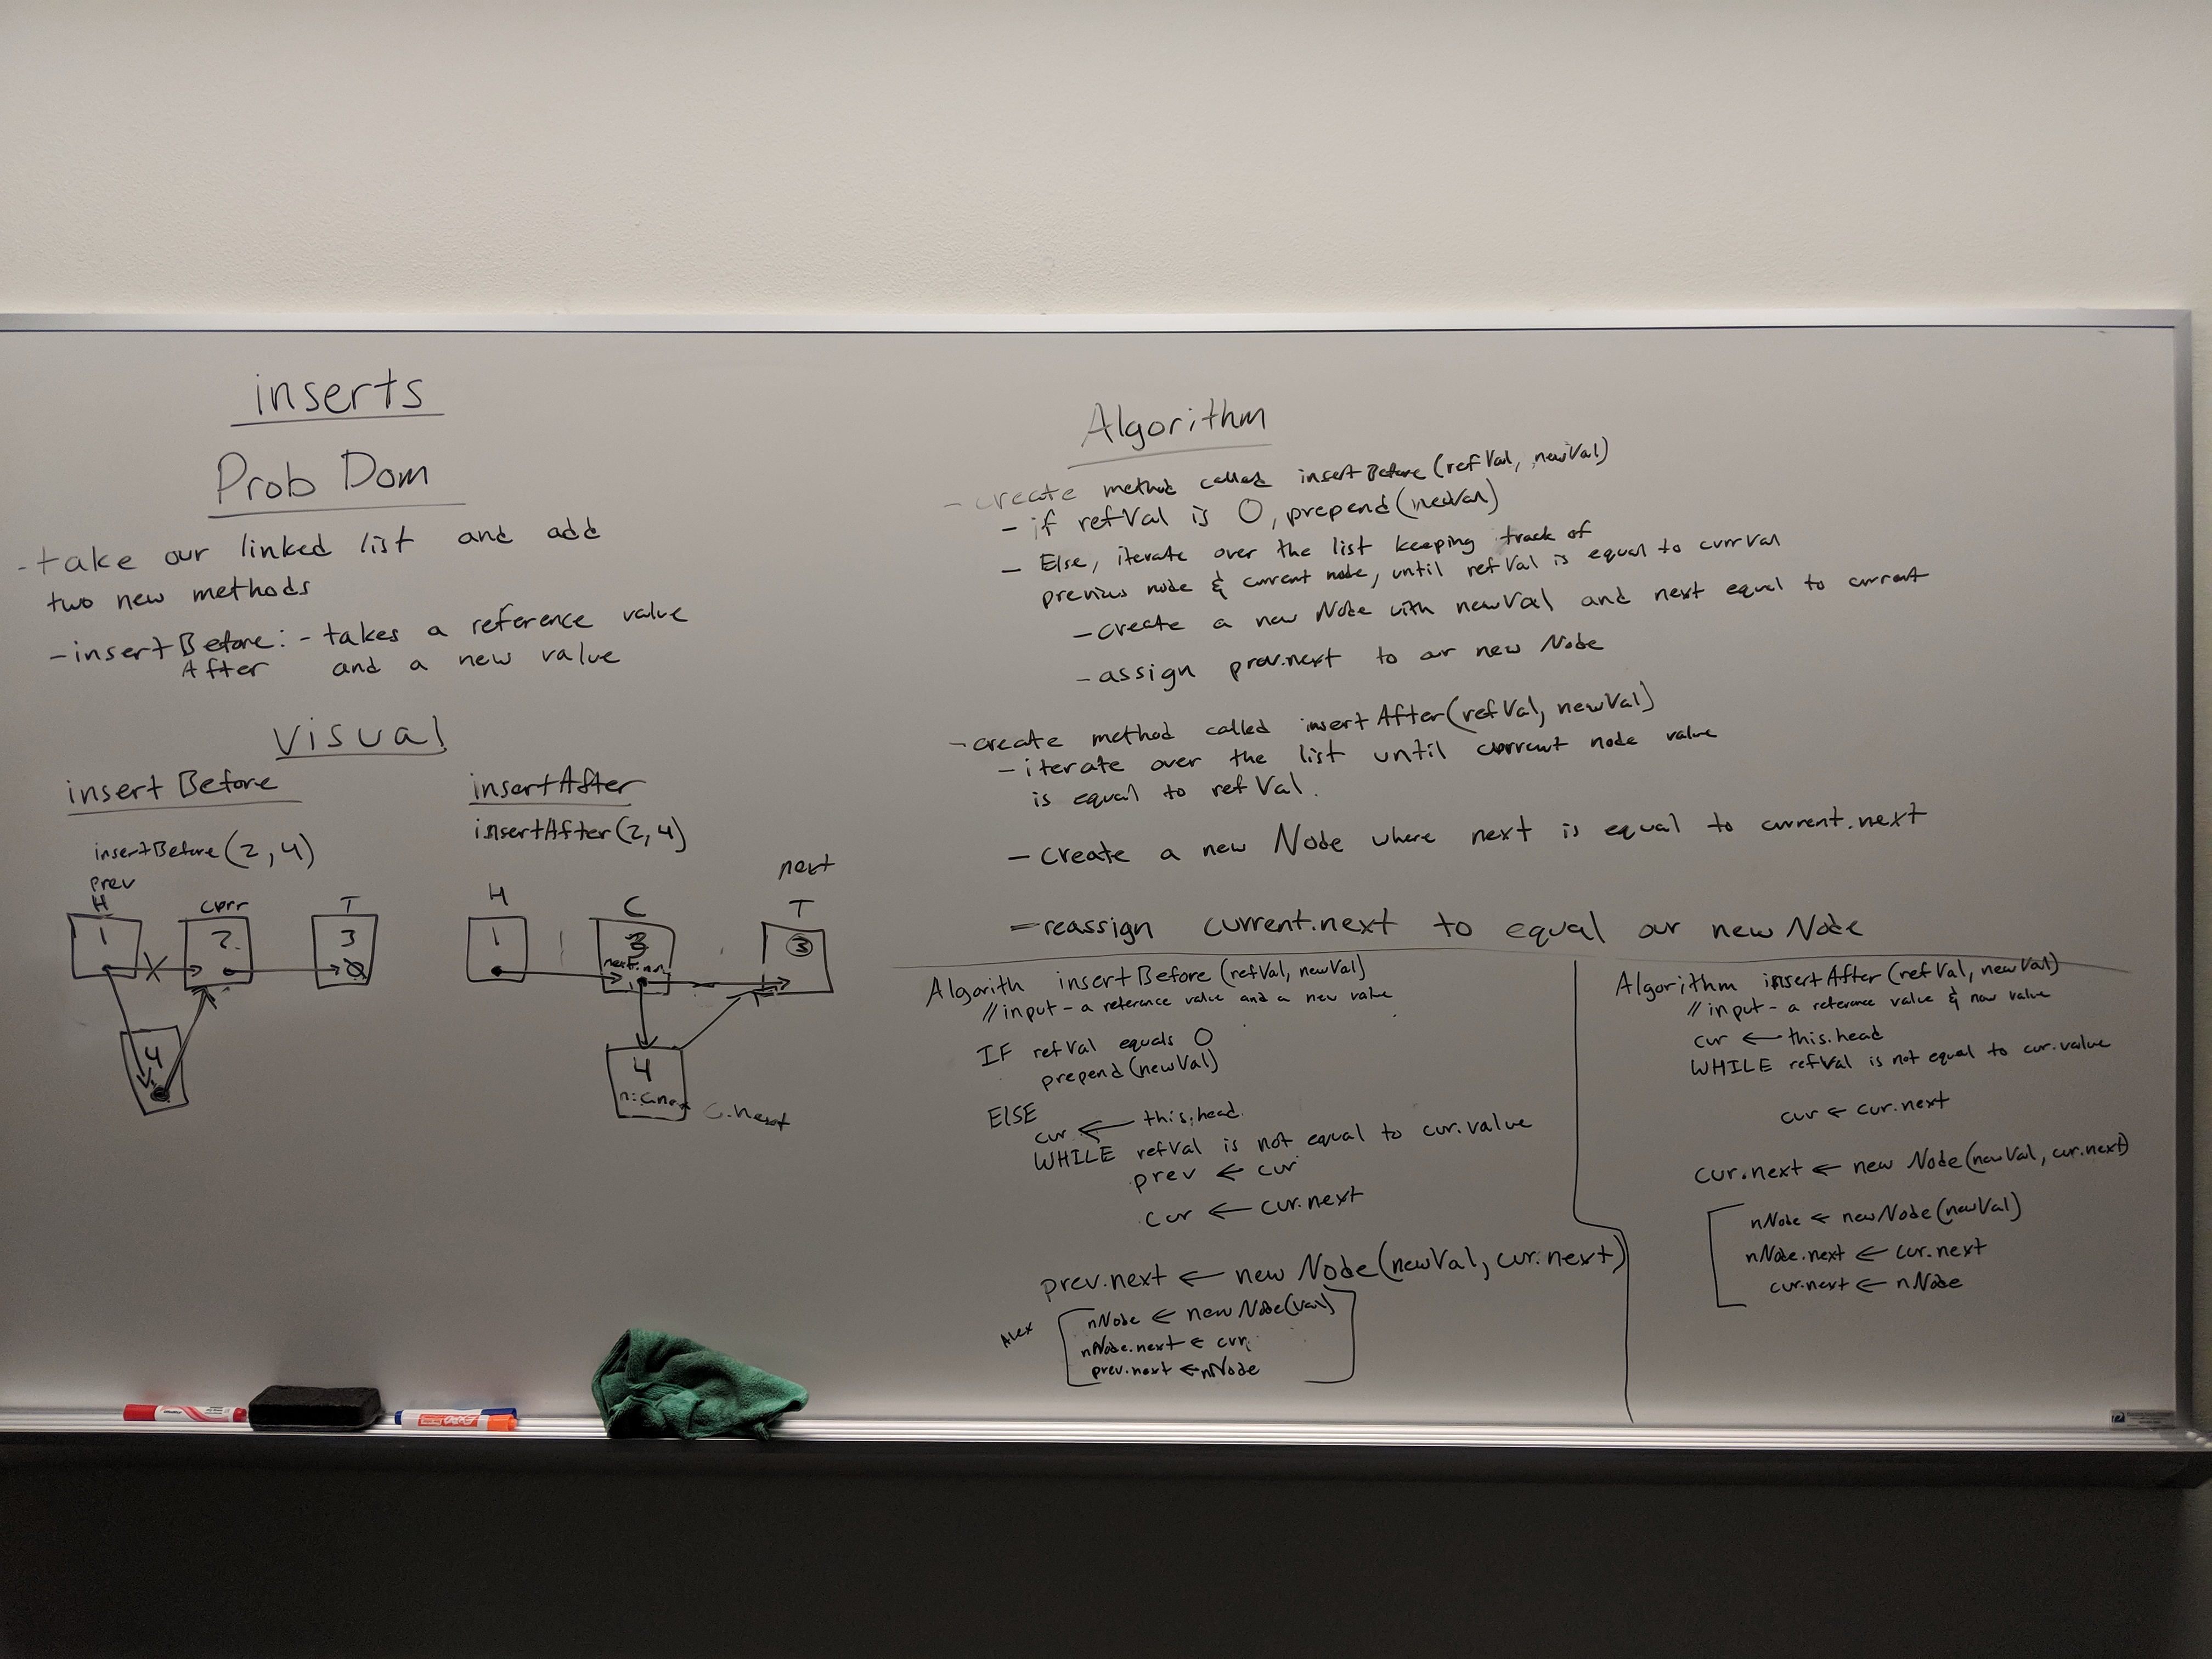 inserts
Prob Dom
- take our linked list and add
two new methods
- insertBefore: - takes a reference value
After and a new value
Visual
insertBefore
insertBefore(2,4)
prev
H curr T
1 2 3
4
insertAfter
insertAfter(2,4)
next
H C T
1 3
4
c.next
Algorithm
- create method called insertBefore(refVal, newVal)
- if refVal is 0, prepend(newVal)
- Else, iterate over the list keeping track of
previous node & current node, until refVal is equal to currVal
- create a new Node with newVal and next equal to current
- assign prev.next to our new Node
- create method called insertAfter(refVal, newVal)
- iterate over the list until current node value
is equal to refVal.
- Create a new Node where next is equal to current.next
- reassign current.next to equal our new Node
Algorith insertBefore(refVal, newVal)
// input - a reference value and a new value
IF refVal equals 0
prepend(newVal)
ELSE
cur ← this.head
WHILE refVal is not equal to cur.value
prev ← cur
cur ← cur.next
prev.next ← new Node(newVal, cur.next)
Alex
nNode ← newNode(val)
nNode.next ← curr
prev.next ← nNode
Algorithm insertAfter(refVal, newVal)
// input - a reference value & new value
cur ← this.head
WHILE refVal is not equal to cur.value
cur ← cur.next
cur.next ← new Node(newVal, cur.next)
nNode ← newNode(newVal)
nNode.next ← cur.next
cur.next ← nNode